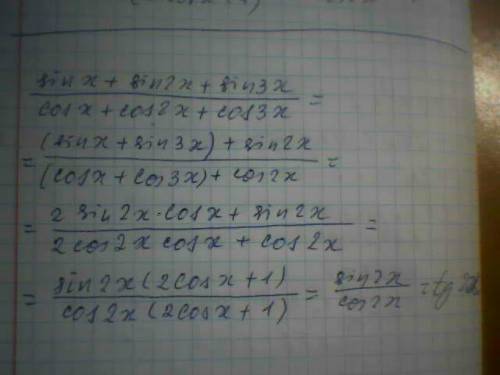 sin x + sin 2x + sin 3x
cos x + cos 2x + cos 3x =
= (sin x + sin 3x) + sin 2x
(cos x + cos 3x) + cos 2x =
= 2 sin 2x · cos x + sin 2x
2 cos 2x cos x + cos 2x =
= sin 2x (2cos x + 1) = sin 2x = tg 2x
cos 2x (2cos x + 1) cos 2x